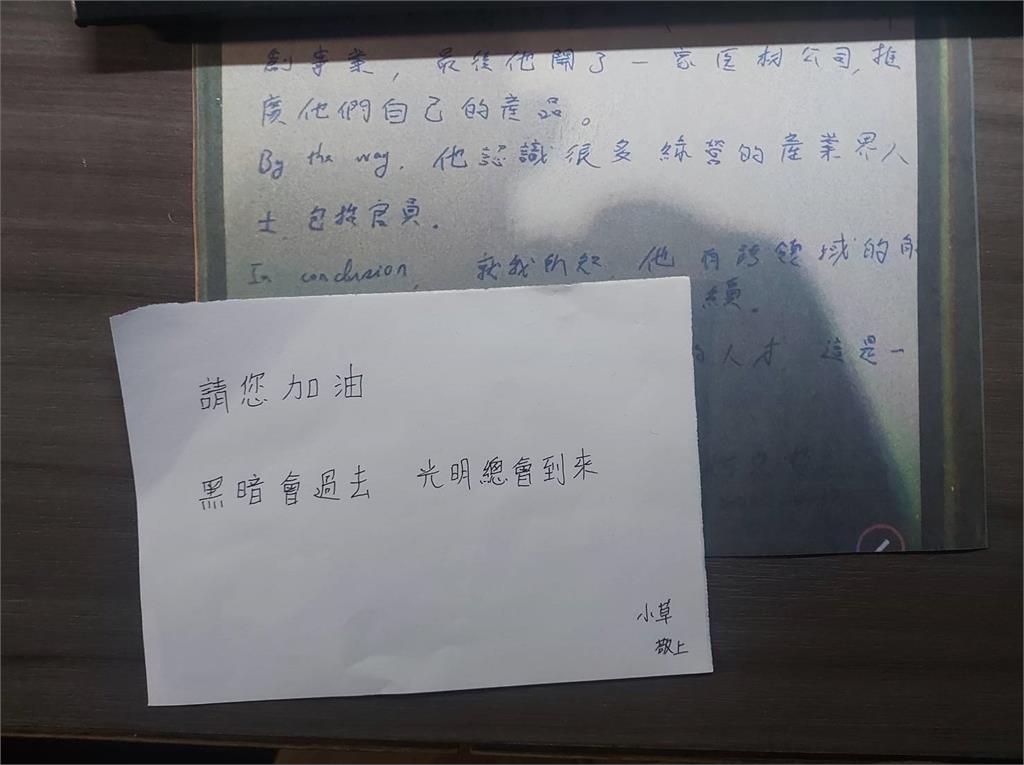 創事業，最後他開了一家医材公司，推
廣他們自己的產品。
By the way，他認識很多綠營的產業界人
士，包括官員。
In conclusion， 就我所知，他有跨領域的
績。
人才，這是一
請您加油
黑暗會過去 光明總會到來
小草
敬上